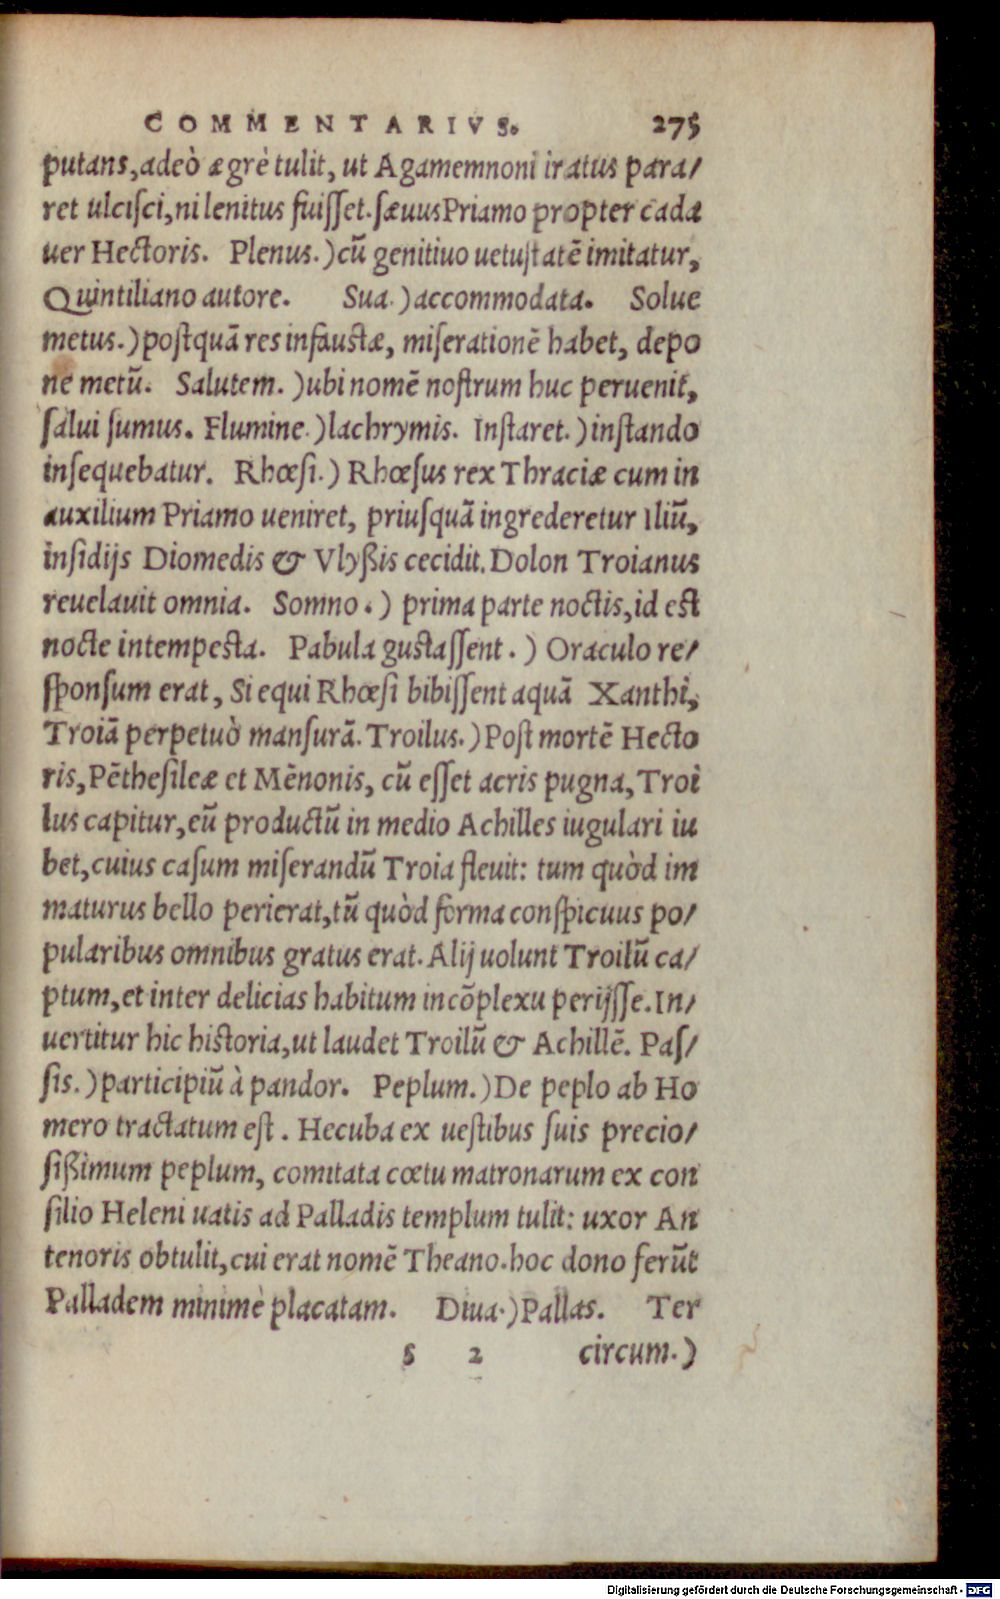 COMMENTARIVS. 275
putans, adeò ægrè tulit, ut Agamemnoni iratus para/
ret ulciſci, ni lenitus fuiſſet. ſæuus Priamo propter cada
uer Hectoris. Plenus.) cũ genitiuo uetuſtatẽ imitatur,
Quintiliano autore. Sua.) accommodata. Solue
metus.) poſtquã res infauſtæ, miſerationẽ habet, depo
ne metũ. Salutem.) ubi nomẽ noſtrum huc peruenit,
ſalui ſumus. Flumine.) lachrymis. Inſtaret.) inſtando
inſequebatur. Rhœſi.) Rhœſus rex Thraciæ cum in
auxilium Priamo ueniret, priuſquã ingrederetur Iliũ,
inſidijs Diomedis & Vlyßis cecidit. Dolon Troianus
reuelauit omnia. Somno.) prima parte noctis, id eſt
nocte intempeſta. Pabula guſtaſſent.) Oraculo re/
ſponſum erat, Si equi Rhœſi bibiſſent aquã Xanthi,
Troiã perpetuò manſurã. Troilus.) Poſt mortẽ Hecto
ris, Pẽtheſileæ et Mẽnonis, cũ eſſet acris pugna, Troi
lus capitur, eũ productũ in medio Achilles iugulari iu
bet, cuius caſum miſerandũ Troia fleuit: tum quòd im
maturus bello perierat, tũ quòd forma conſpicuus po/
pularibus omnibus gratus erat. Alij uolunt Troilũ ca/
ptum, et inter delicias habitum in cõplexu perijſſe. In/
uertitur hic hiſtoria, ut laudet Troilũ & Achillẽ. Paſ/
ſis.) participiũ à pandor. Peplum.) De peplo ab Ho
mero tractatum eſt. Hecuba ex ueſtibus ſuis precio/
ſißimum peplum, comitata cœtu matronarum ex con
ſilio Heleni uatis ad Palladis templum tulit: uxor An
tenoris obtulit, cui erat nomẽ Theano. hoc dono ferũt
Palladem minimè placatam. Diua.) Pallas. Ter
s 2 circum.)
Digitalisierung gefördert durch die Deutsche Forschungsgemeinschaft - DFG